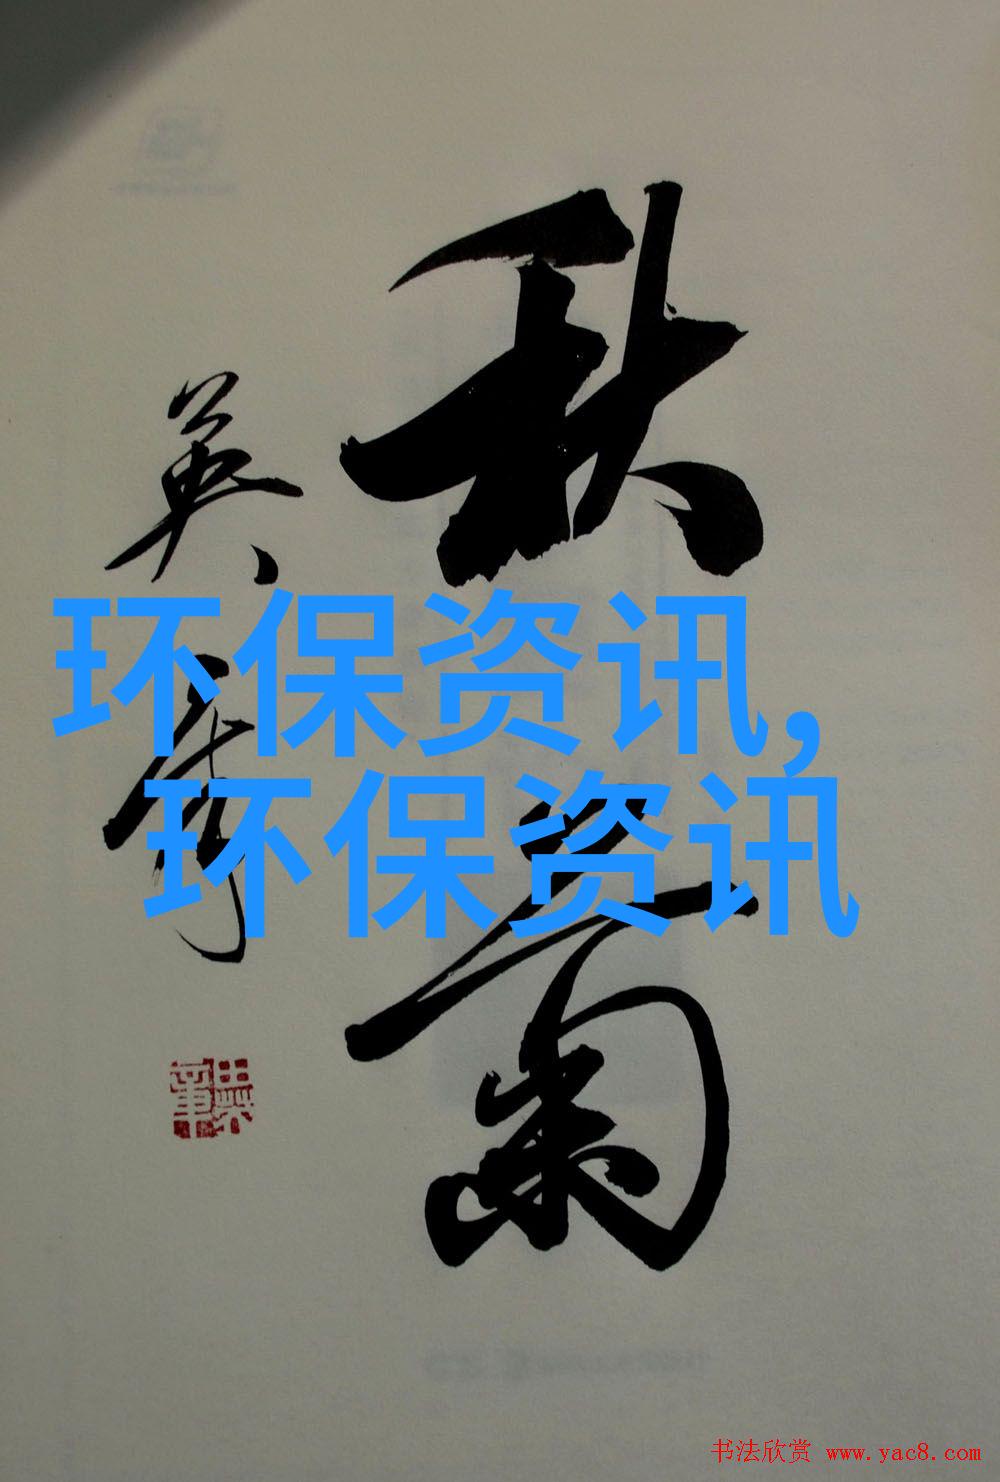 秋菊
英章
环保资讯,
环保资讯
书法欣赏 www.yac8.com